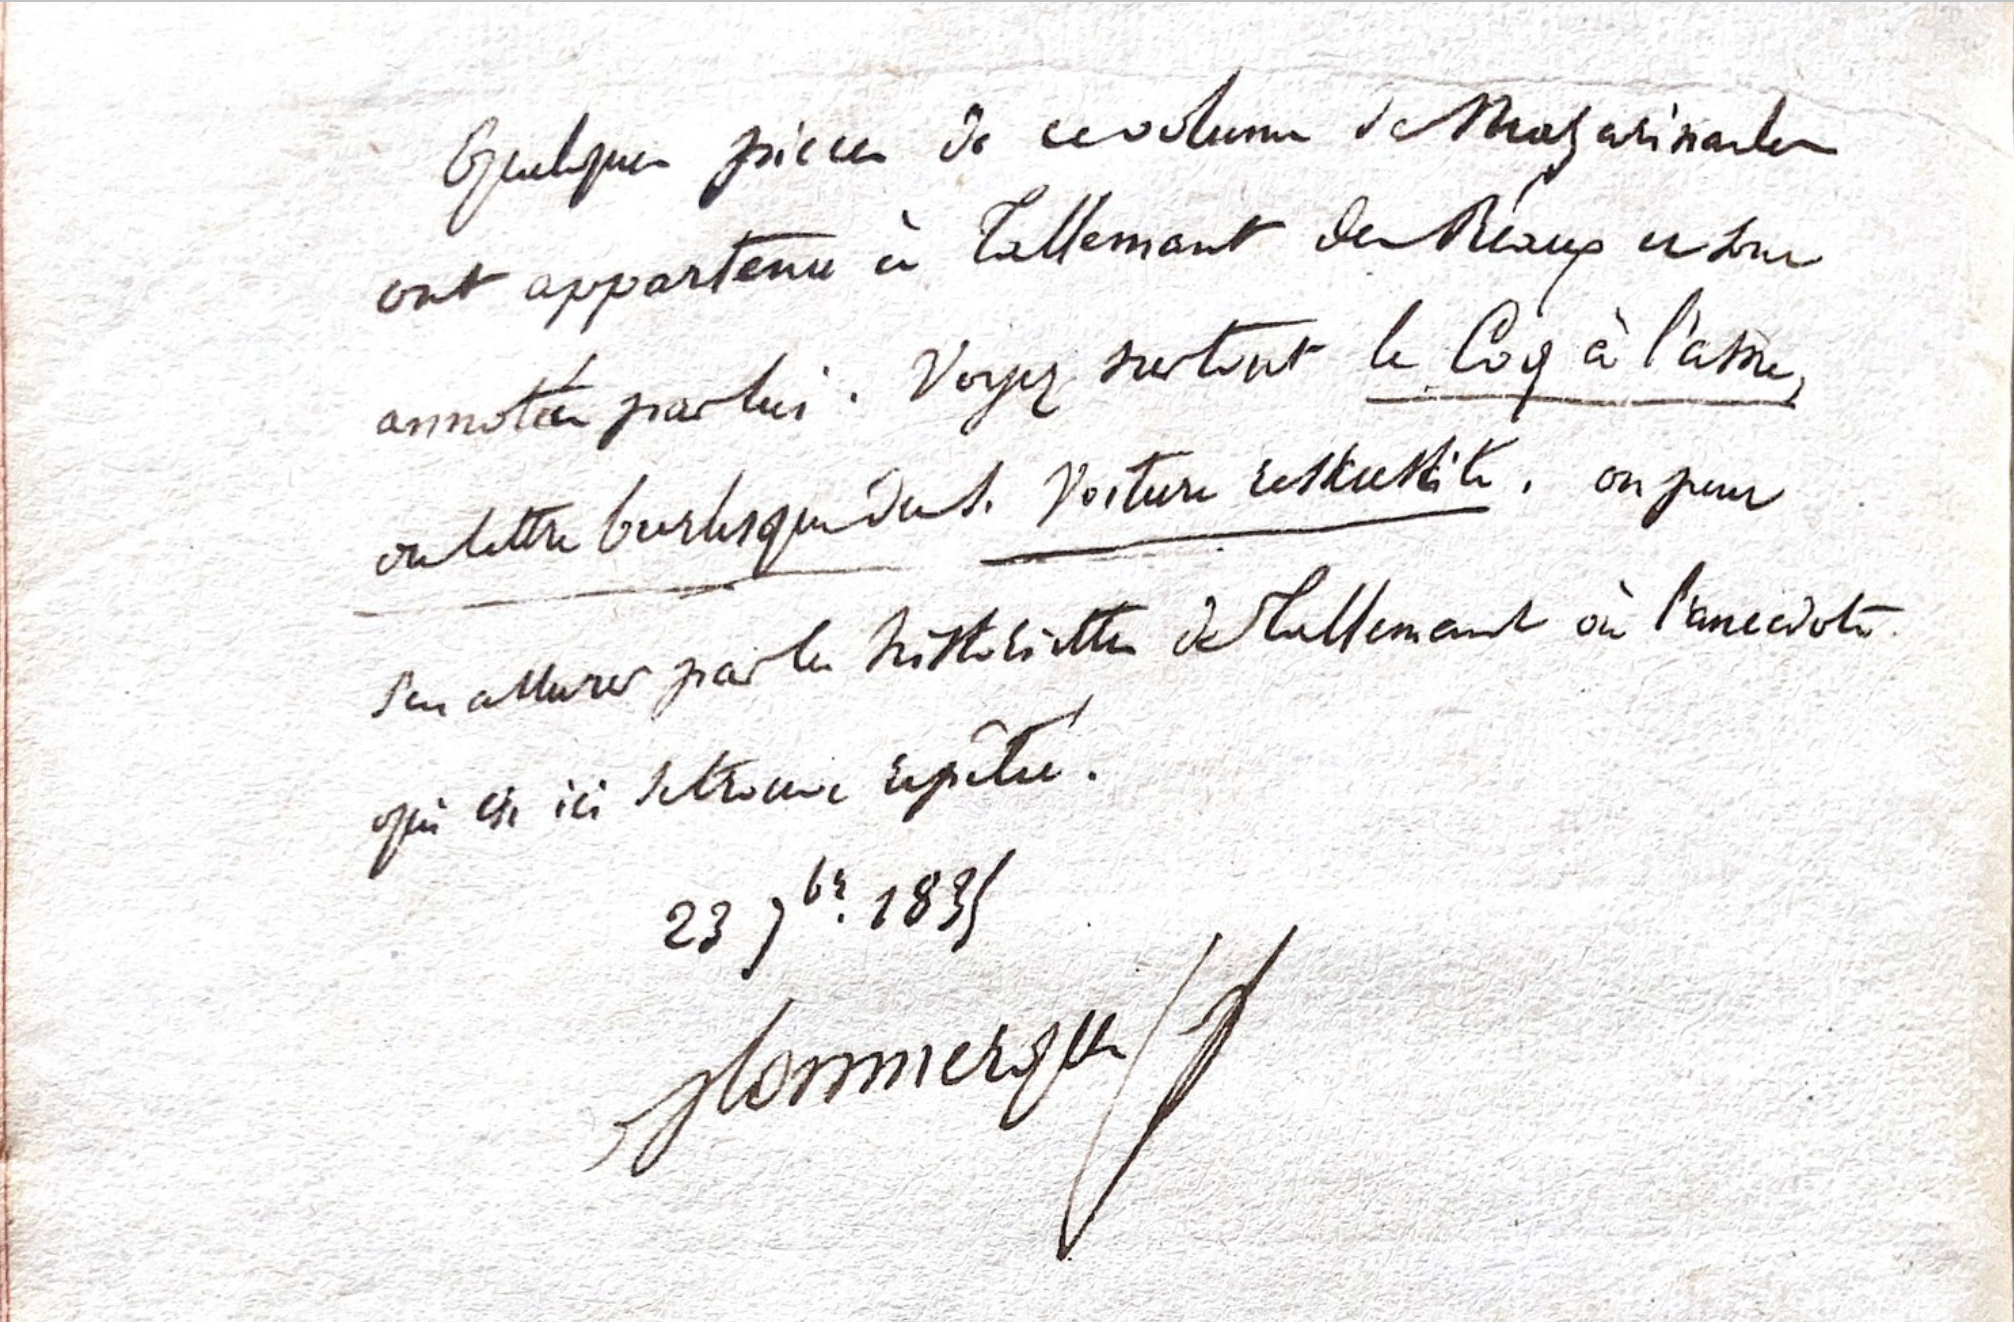 Quelques pièces de ce volume de Mazarinades
ont appartenu à Tallemant des Réaux et sont
annotées par lui. Voyez surtout le Coq à l'asne,
ou lettre burlesque du S. Voiture ressuscité. on peut
s'en assurer par les historiettes de Tallemant où l'anecdote
qui est ici se trouve repétée.
23 7br. 1835
Monmerqué